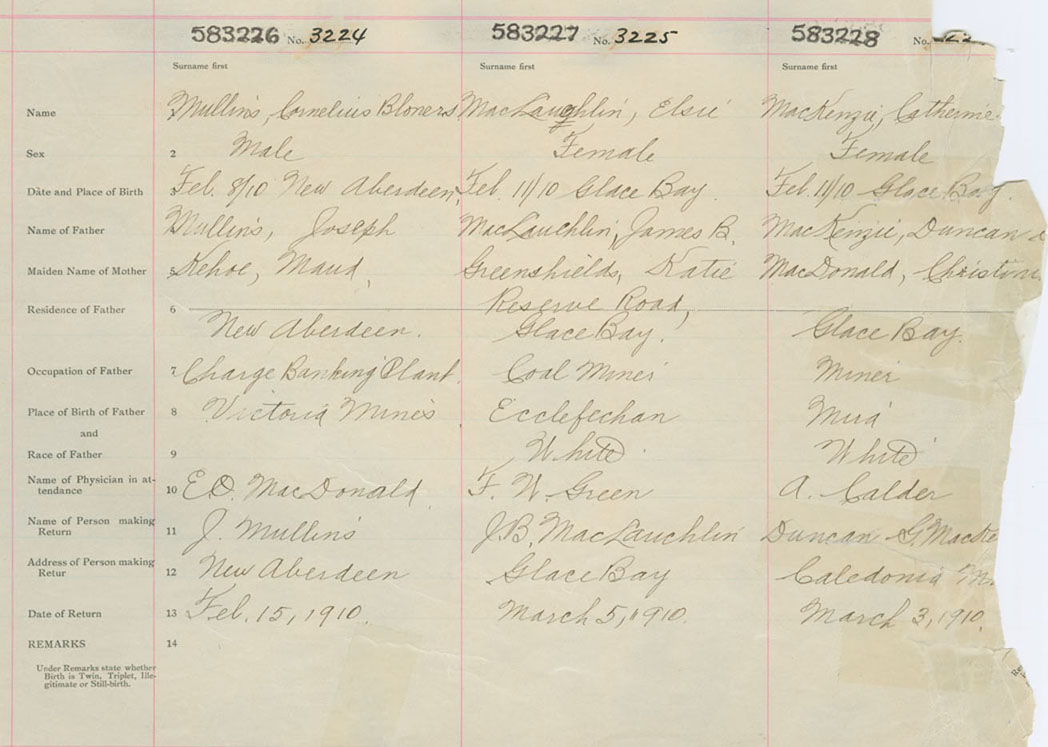 583226 No. 3224 583227 No. 3225 583228 No.
Surname first Surname first Surname first
Name Mullins, Cornelius MacLaughlin, Elsie MacKenzie, Catherine
Sex 2 Male Female Female
Date and Place of Birth Feb. 8/10 New Aberdeen, Feb 11/10 Glace Bay. Feb. 11/10 Glace Bay.
Name of Father Mullins, Joseph MacLauchlin, James B. MacKenzie, Duncan
Maiden Name of Mother 5 Kehoe, Maud, Greenshields, Katie MacDonald, Christin
Reserve Road,
Residence of Father 6 New Aberdeen. Glace Bay. Glace Bay.
Occupation of Father 7 Charge Banking Plant. Coal Miner Miner
Place of Birth of Father 8 Victoria Mines Ecclefechan Mira
and
Race of Father 9 White White
Name of Physician in at-
tendance 10 E.O. MacDonald. F. W. Green A. Calder
Name of Person making
Return 11 J. Mullins J.B. MacLauchlin Duncan G. MacKe
Address of Person making
Retur 12 New Aberdeen Glace Bay Caledonia
Date of Return 13 Feb. 15, 1910. March 5, 1910. March 3, 1910.
REMARKS 14
Under Remarks state whether
Birth is Twin, Triplet, Ille-
gitimate or Still-birth.